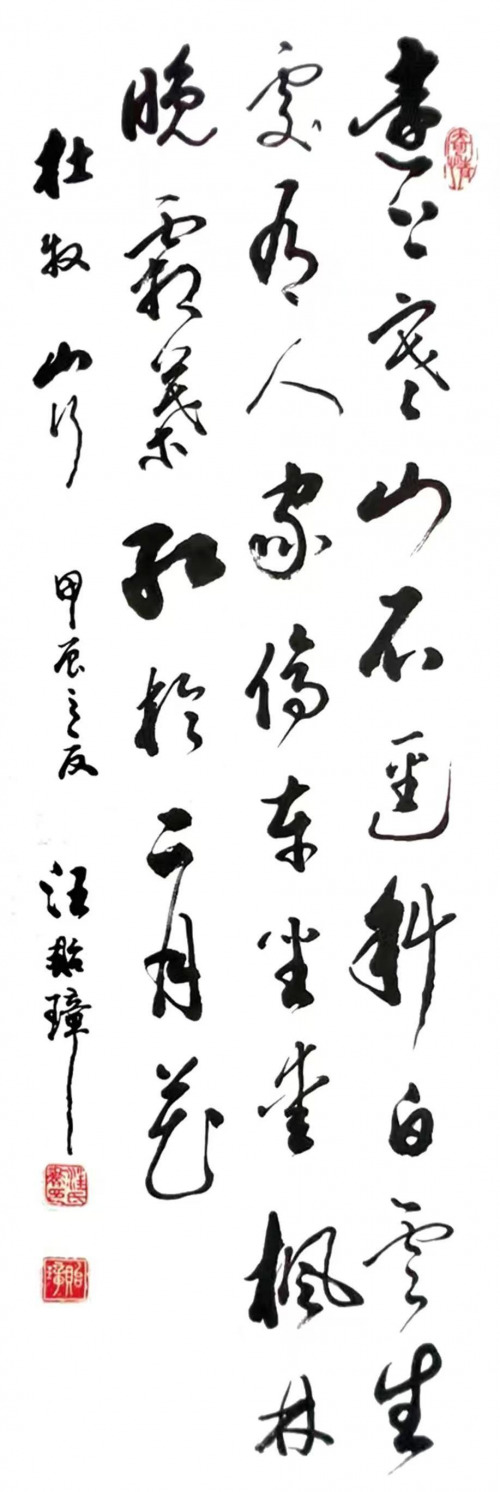 遠上寒山石逕斜白雲生
處有人家停車坐愛楓林
晚霜葉紅於二月花
杜牧 山行 甲辰之夏 汪貽璋